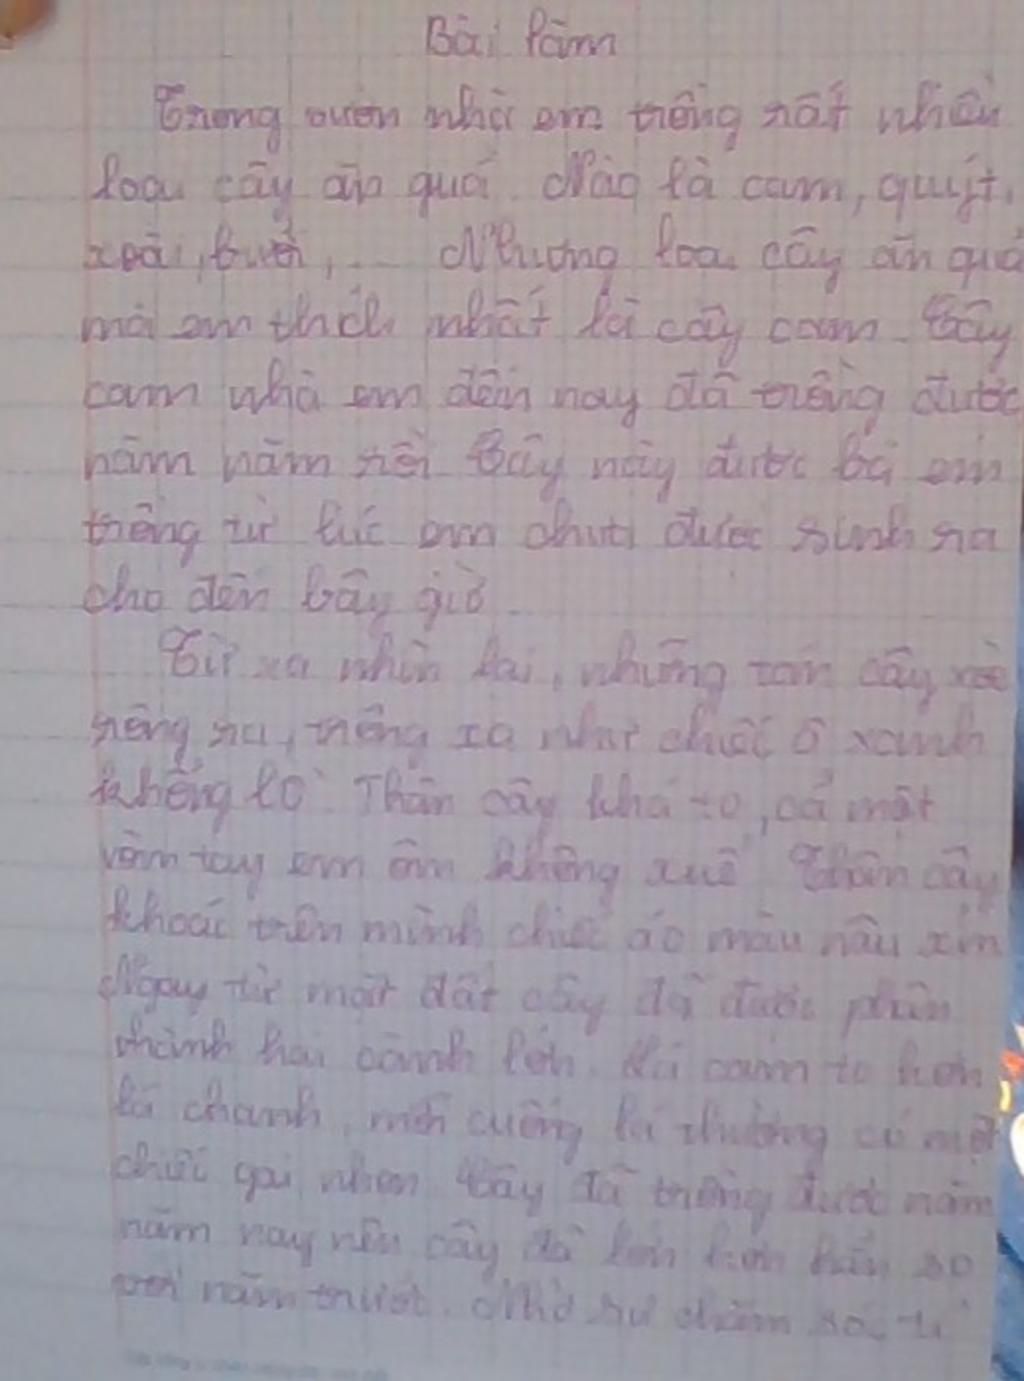 Bài làm
Trong vườn nhà em trồng rất nhiều
loại cây ăn quả. Nào là cam, quýt,
xoài, bưởi, ... Nhưng loại cây ăn quả
mà em thích nhất là cây cam. Cây
cam nhà em đến nay đã trồng được
năm năm rồi. Cây này được bà em
trồng từ lúc em chưa được sinh ra
cho đến bây giờ.
Từ xa nhìn lại, những tán cây xoè
rộng ra, trông xa như chiếc ô xanh
khổng lồ. Thân cây khá to, cả một
vòm tay em ôm không xuể. Thân cây
khoác trên mình chiếc áo màu nâu xỉn
Ngay từ mặt đất cây đã được phân
thành hai cành lớn. Lá cam to hơn
lá chanh, mỗi cuống lá thường có một
chiếc gai nhọn. Cây đã trồng được năm
năm nay nên cây đã lớn hơn hẳn so
với năm trước. Nhờ sự chăm sóc tỉ